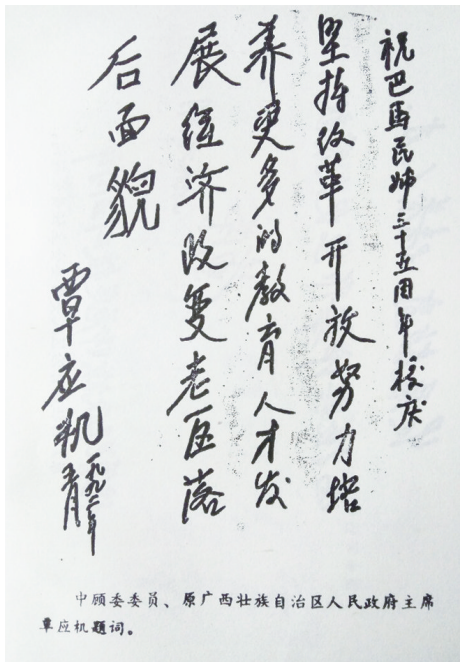 祝巴马民师三十五周年校庆
坚持改革开放努力培
养更多的教育人才发
展经济改变老区落
后面貌
覃应机
中顾委委员、原广西壮族自治区人民政府主席
覃应机题词。